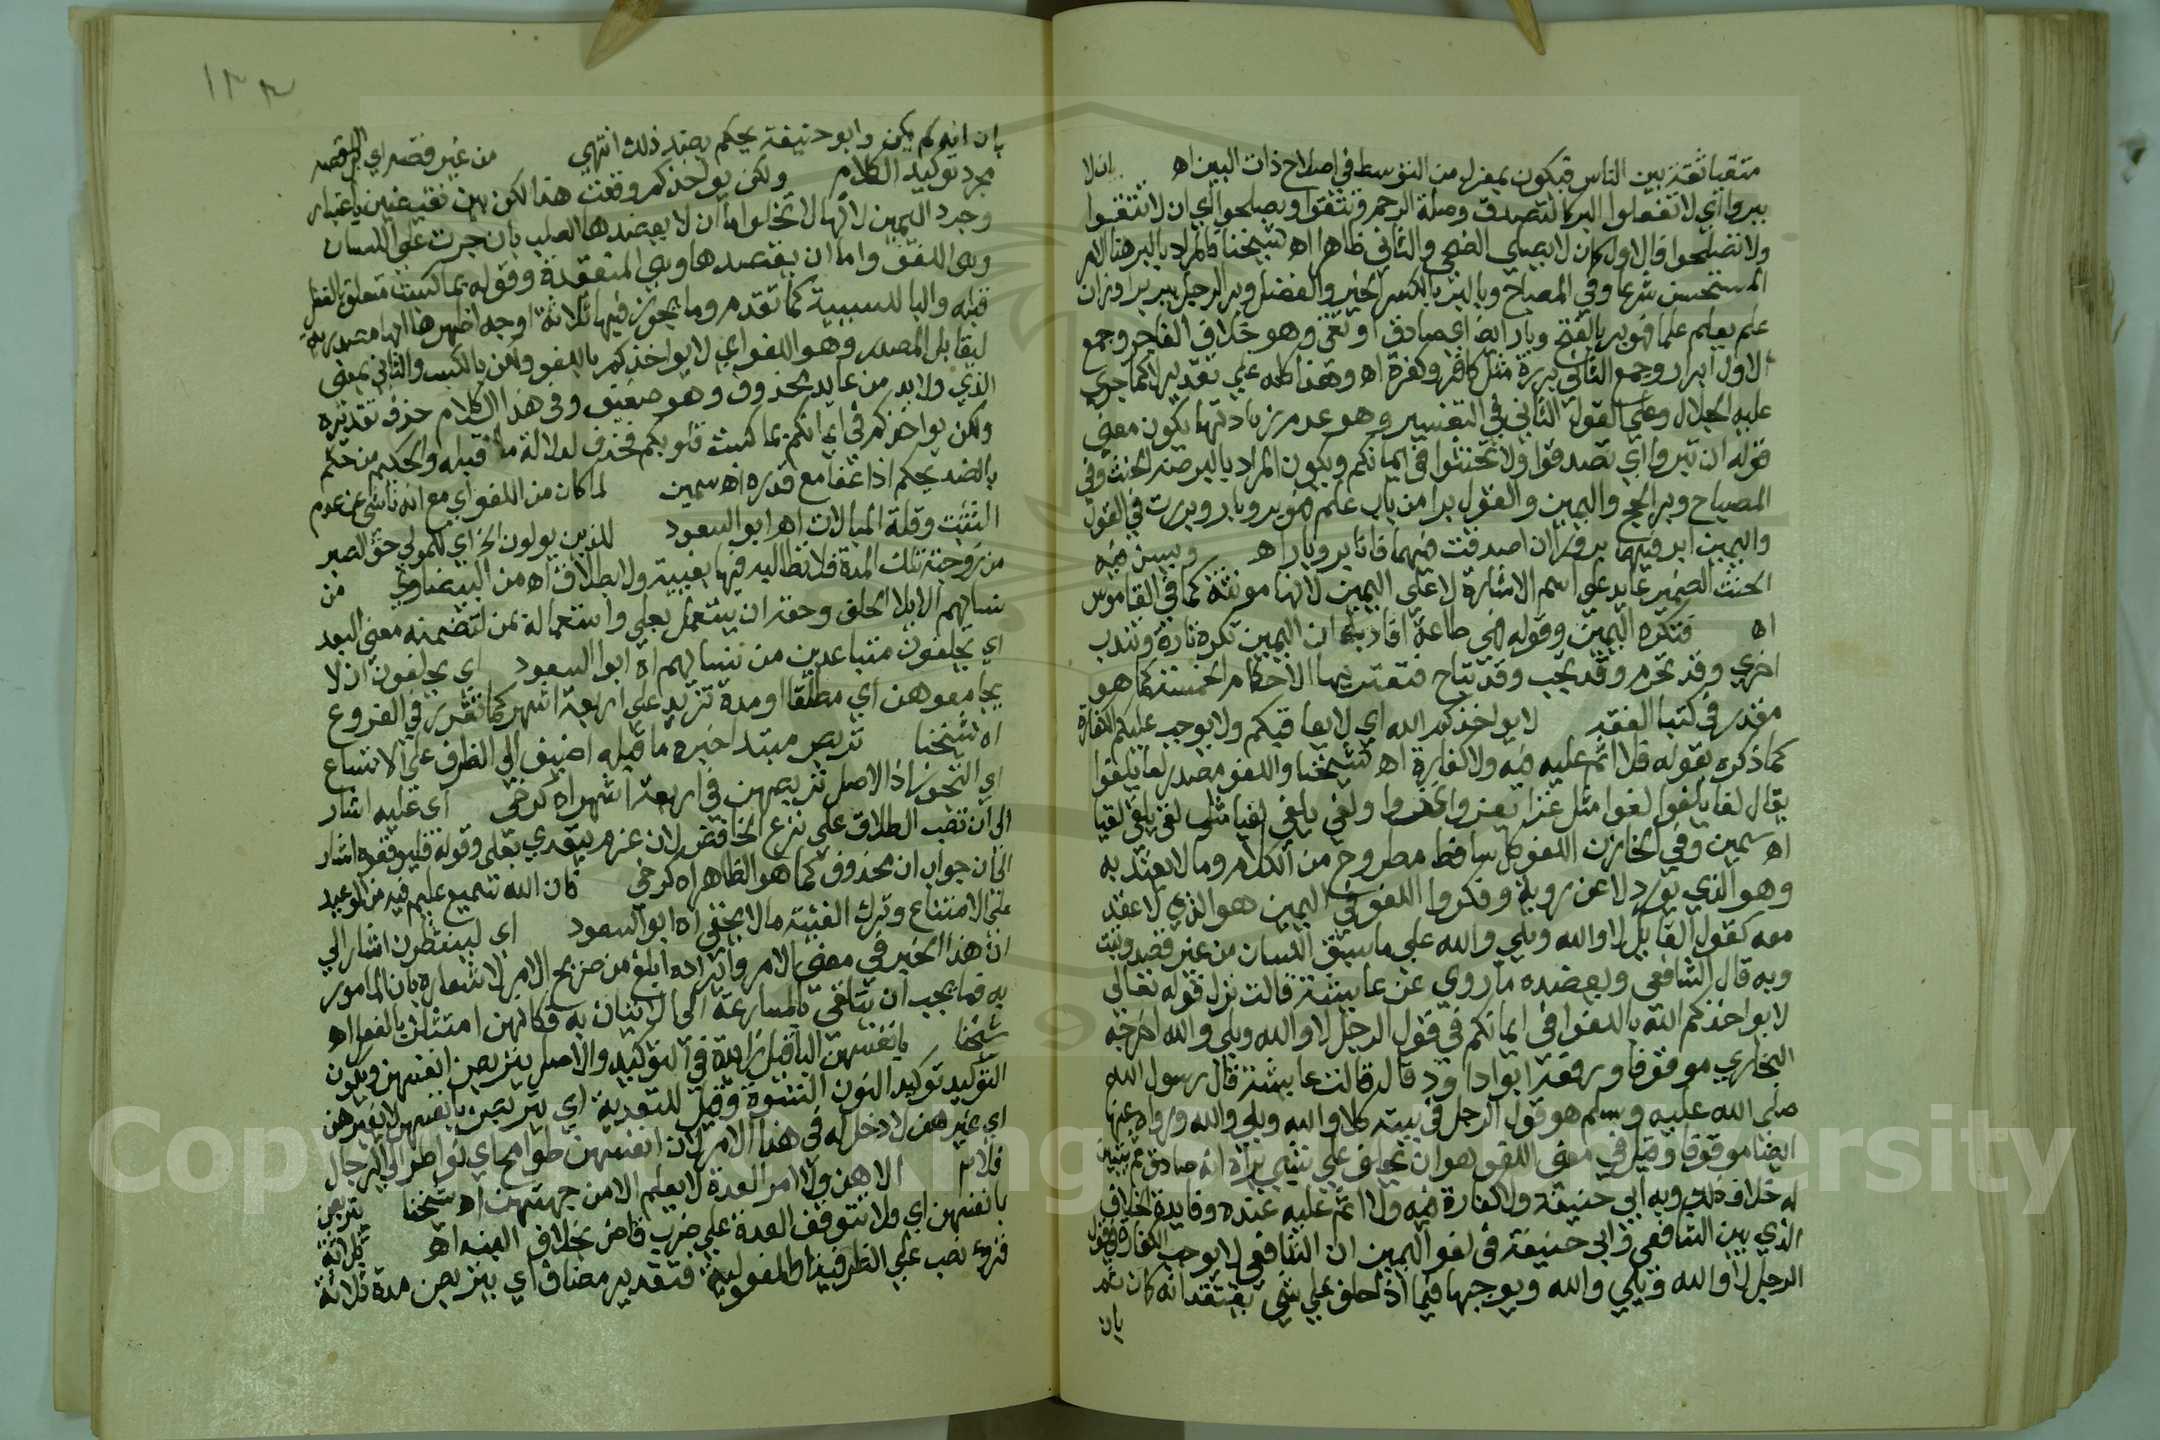 متقيا ثقة بين الناس فيكون بمعزل من التوسط في اصلاح ذات البين اه ان لا
تبروا اي لا تفعلوا البر كالتصدق وصلة الرحم وتتقوا وتصلحوا اي ان لا تتقوا
ولا تصلحوا فالاول كان لا يصلي الضحى والثاني ظاهر اه شيخنا فالمراد بالبر هنا الامر
المستحسن شرعا وفي المصباح والبر بالكسر الخير والفضل وبر الرجل يبر برا وزان
علم يعلم علما فهو بر بالفتح وبار ايضا اي صادق او تقي وهو خلاف الفاجر وجمع
الاول ابرار وجمع الثاني بررة مثل كافر وكفرة اه وهذا كله على تقدير لا كما جرى
عليه الجلال وعلى القول الثاني في التفسير وهو عدم زيادتها يكون معنى
قوله ان تبروا اي تصدقوا ولا تحنثوا في ايمانكم ويكون المراد بالبر ضد الحنث وفي
المصباح وبر الحج واليمين والقول برا من باب علم فهو بر وبار وبررت في القول
واليمين ابر فيهما برورا ان اصدقت فيهما فانا بر وبار اه ويسن فيه
الحنث الضمير عايد على اسم الاشارة لا على اليمين لانها مونثة كما في القاموس
اه فتكره اليمين وقوله فهي طاعة افاد به ان اليمين تكره تارة وتندب
اخرى وقد تحرم وقد تجب وقد تباح فتعتريها الاحكام الخمسة كما هو
مقدر في كتب الفقه لا يواخذكم الله اي لا يعاقبكم ولا يوجب عليكم الكفارة
كما ذكره بقوله فلا اثم عليه فيه ولا كفارة اه شيخنا واللغو مصدر لغا يلغوا
يقال لغا يلغوا لغوا مثل غزا يغزوا غزوا ولغى يلغي لغيا مثل لقي يلقى لقيا
اه سمين وفي الخازن اللغو كل ساقط مطروح من الكلام وما لا يعتد به
وهو الذي يورد لا عن روية وفكر واللغو في اليمين هو الذي لا عقد
معه كقول القايل لا والله وبلى والله على ما سبق اللسان من غير قصد ونية
وبه قال الشافعي ويعضده ما روي عن عايشة قالت نزل قوله تعالى
لا يواخذكم الله باللغو في ايمانكم في قول الرجل لا والله وبلى والله اخرجه
البخاري موقوفا ورفعه ابو داود قال قالت عايشة قال رسول الله
صلى الله عليه وسلم هو قول الرجل في بيته كلا والله وبلى والله ورواه عنها
ايضا موقوفا وقيل في معنى اللغو هو ان يحلف على شيء يراه انه صادق ثم يتبين
له خلاف ذلك وبه ابي حنيفة ولا كفارة فيه ولا اثم عليه عنده وفايدة الخلاف
الذي بين الشافعي وابي حنيفة في لغو اليمين ان الشافعي لا يوجب الكفارة في قول
الرجل لا والله وبلى والله ويوجبها فيما اذا حلف على شي يعتقد انه كان ثم
بان
١٣٣
بان انه لم يكن وابو حنيفة يحكم بضد ذلك انتهى من غير قصد اي بل لقصد
مجرد توكيد الكلام ولكن يواخذكم وقعت هنا لكن بين نقيضين باعتبار
وجود اليمين لانها لا تخلوا اما ان لا يقصدها القلب بان جرت على اللسان
وهي اللغو واما ان يقصدها وهي المنعقدة وقوله بما كسبت متعلق بالفعل
قبله والبا للسببية كما تقدم وما يجوز فيها ثلاثة اوجه اظهرها انها مصدرية
ليقابل المصدر وهو اللغو اي لا يواخذكم باللغو ولكن بالكسب والثاني بمعنى
الذي ولا بد من عايد محذوف وهو ضعيف وفي هذا الكلام حذف تقديره
ولكن يواخذكم في ايمانكم بما كسبت قلوبكم فحذف لدلالة ما قبله والحكيم من حكم
بالضد يحكم اذا عفا مع قدرة اه سمين لما كان من اللغو اي مع انه ناشي عن عدم
التثبت وقلة المبالات اه ابو السعود للذين يولون الخ اي للمولي حق الصبر
من زوجته تلك المدة فلا تطالبه فيها بفيية ولا بطلاق اه من البيضاوي من
نسائهم الايلا الحلف وحقه ان يستعمل بعلى واستعماله بمن لتضمنه معنى البعد
اي يحلفون متباعدين من نسائهم اه ابو السعود اي يحلفون ان لا
يجامعوهن اي مطلقا او مدة تزيد على اربعة اشهر كما تقرر في الفروع
اه شيخنا تربص مبتدا خبره ما قبله اضيف الى الظرف على الاتساع
اي التجوز اذ الاصل تربصهن في اربعة اشهر اه كرخي اي عليه اشار
الى ان نصب الطلاق على نزع الخافض لان عزم يتعدى بعلى وقوله فليوقعوه اشار
الى ان جواب ان محذوف كما هو الظاهر اه كرخي فان الله سميع عليم فيه من الوعيد
على الامتناع وترك الفيئة ما لا يخفى اه ابو السعود اي لينتظرن اشار الى
ان هذا الخبر في معنى الامر وايراده ابلغ من صريح الامر لاشعاره بان المامور
به مما يجب ان يتلقى بالمسارعة الى الاتيان به فكانهن امتثلن بالفعل اه
شيخنا بانفسهن البا قيل زايدة في التوكيد والاصل يتربصن انفسهن ويكون
التوكيد توكيد النون النسوة وقيل للتعدية اي يتربصن بانفسهن لا بغيرهن
اي غيرهن لا دخل له في هذا الامر لان انفسهن طوامح اي نواظر الى الرجال
فلا الا هن ولا امر العدة لا يعلم الا من جهتهن اه شيخنا تتربص
بانفسهن اي ولا تتوقف العدة على ضرب قاض بخلاف العنة اه ثلاثة
قروء نصب على الظرفية او المفعولية فتقدير مضاف اي يتربصن مدة ثلاثة
Copyright © King Saud University